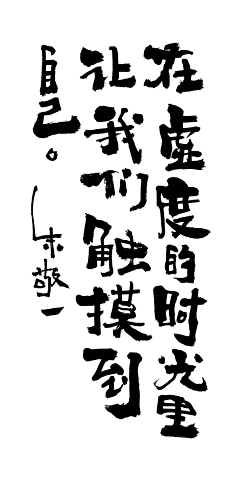 在虚度的时光里
让我们触摸到
自己。
朱敬一